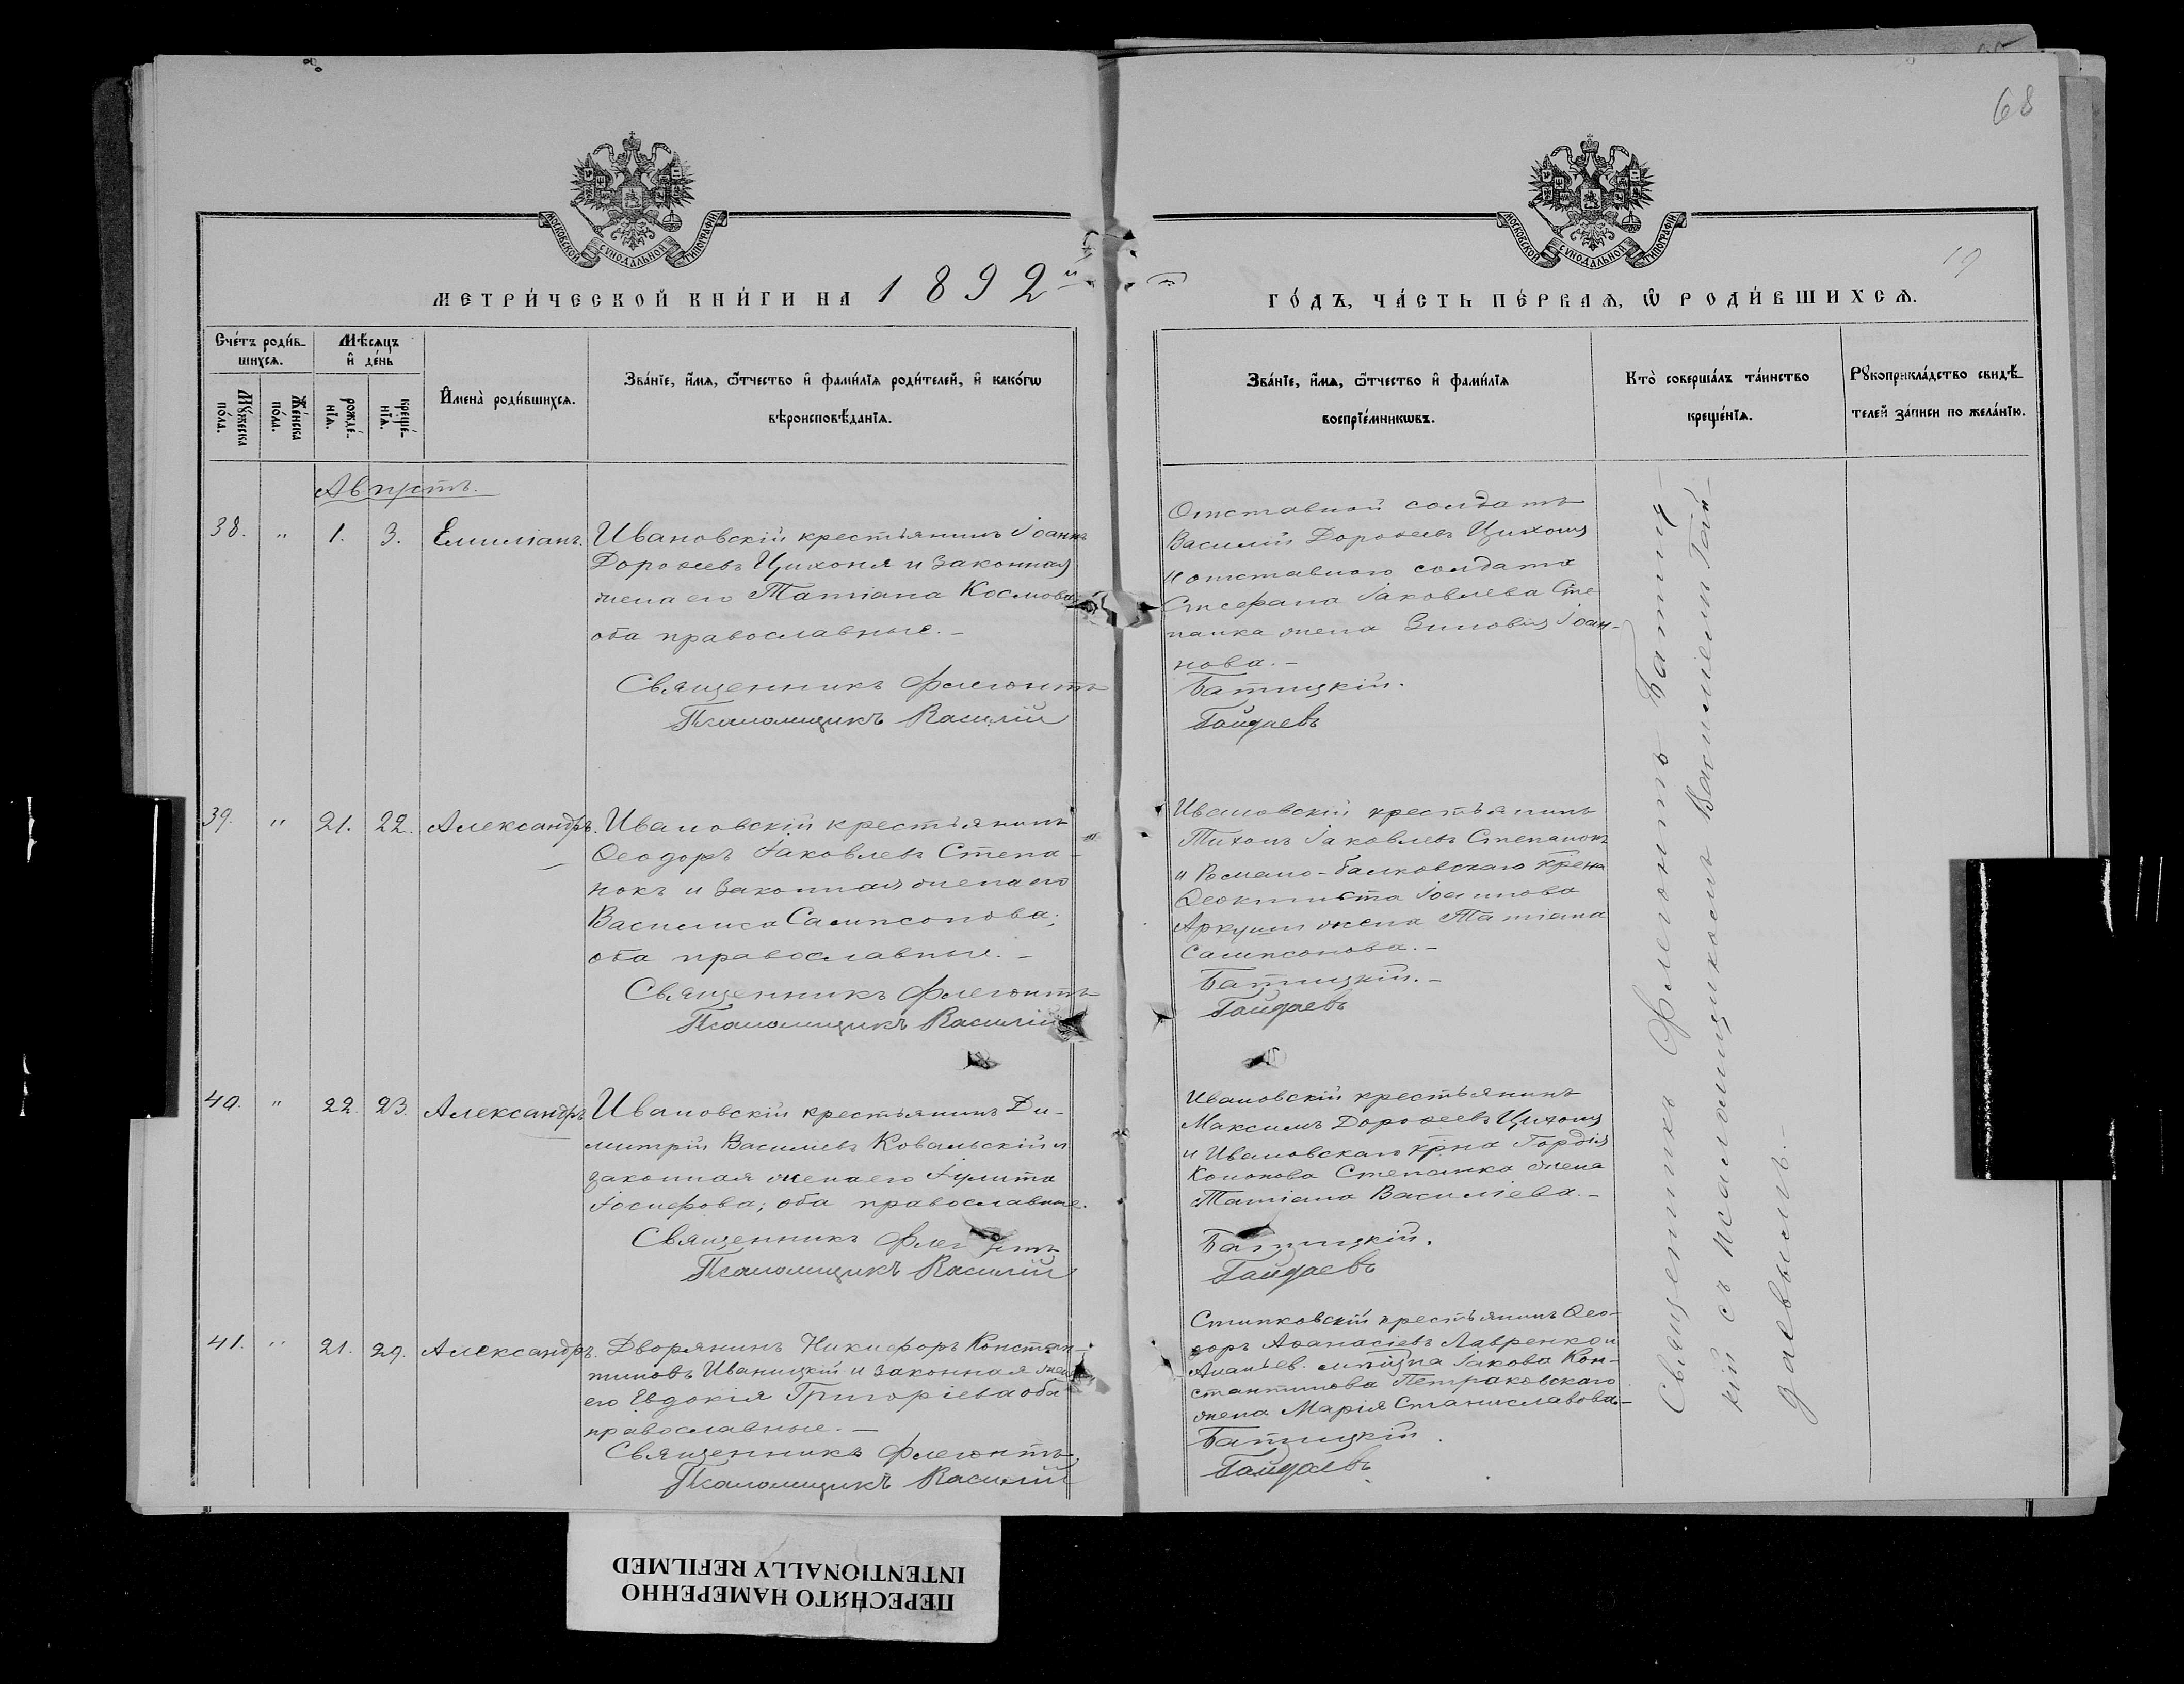 68
МОСКОВСКОЙ СѴНОДАЛЬНОЙ ТИПОГРАФІИ
МОСКОВСКОЙ СѴНОДАЛЬНОЙ ТИПОГРАФІИ
19
МЕТРИ́ЧЕСКОЙ КНИ́ГИ НА 1892й
ГО́ДЪ, ЧА́СТЬ ПЕ́РВАѦ, Ѡ҆ РОДИ́ВШИХСѦ.
Сче́тъ роди́в-
шихсѧ.
Мѣ́сѧцъ
и҆ де́нь
Мꙋ́жеска
по́ла.
Же́нска
по́ла.
рожде́-
нїѧ.
креще́-
нїѧ.
И҆мена̀ роди́вшихсѧ.
Зва́нїе, и҆́мѧ, ѻ҆́тчество и҆ фами́лїѧ роди́телей, и҆ како́гѡ
вѣроисповѣ́данїѧ.
Зва́нїе, и҆́мѧ, ѻ҆́тчество и҆ фами́лїѧ
воспрїе́мникѡвъ.
Кто̀ соверша́лъ та́инство
креще́нїѧ.
Рꙋкоприкла́дство свидѣ́-
телей за́писи по жела́нїю.
Августъ.
38. " 1. 3. Емиліанъ.
Ивановскій крестьянинъ Іоаннъ
Дороѳеевъ Цихоня и законная
жена его Татіана Космова
оба православные.–
Священникъ Флегонтъ
Псаломщикъ Василій
Отставной солдатъ
Василій Дороѳеевъ Цихоня
и отставного солдата
Стефана Іаковлева Сте
панка жена Зиновія Іоан-
нова.–
Батицкій.
Гайдаевъ
39. " 21. 22. Александръ.
Ивановскій крестьянинъ
Ѳеодоръ Іаковлевъ Степа-
нокъ и законная жена его
Василиса Сампсонова;
оба православные.–
Священникъ Флегонтъ
Псаломщикъ Василій
Ивановскій крестьянинъ
Тихонъ Іаковлевъ Степанокъ
и Романо-балковскаго
Ѳеоктиста Іоаннова
Аркуши жена Татіана
Сампсонова.–
Батицкій.–
Гайдаевъ
40. " 22. 23. Александръ
Ивановскій крестьянинъ Ди-
митрій Василіевъ Ковальскій и
законная жена его Іулита
Іосифова; оба православные.
Священникъ Флегонтъ
Псаломщикъ Василій
Ивановскій крестьянинъ
Максимъ Дороѳеевъ Цихоня
и Ивановскаго крна Гордія
Кононова Степанка жена
Татіана Василіева.–
Батицкій.
Гайдаевъ
41. " 21. 29. Александръ.
Дворянинъ Никифоръ Констан-
тиновъ Иваницкій и законная жена
его Евдокія Григоріева оба
православные.–
Священникъ Флегонтъ
Псаломщикъ Василій
крестьянинъ Ѳео-
доръ Аѳанасіевъ Лавренко и
Ананьев. Іакова Кон-
стантинова Петраковскаго
жена Марія Станиславова–
Батицкій.
Гайдаевъ
Священникъ Флегонтъ Батиц-
кій съ псаломщикомъ Василіемъ Гай-
даевымъ.–
ПЕРЕСНЯТО НАМЕРЕННО
INTENTIONALLY REFILMED